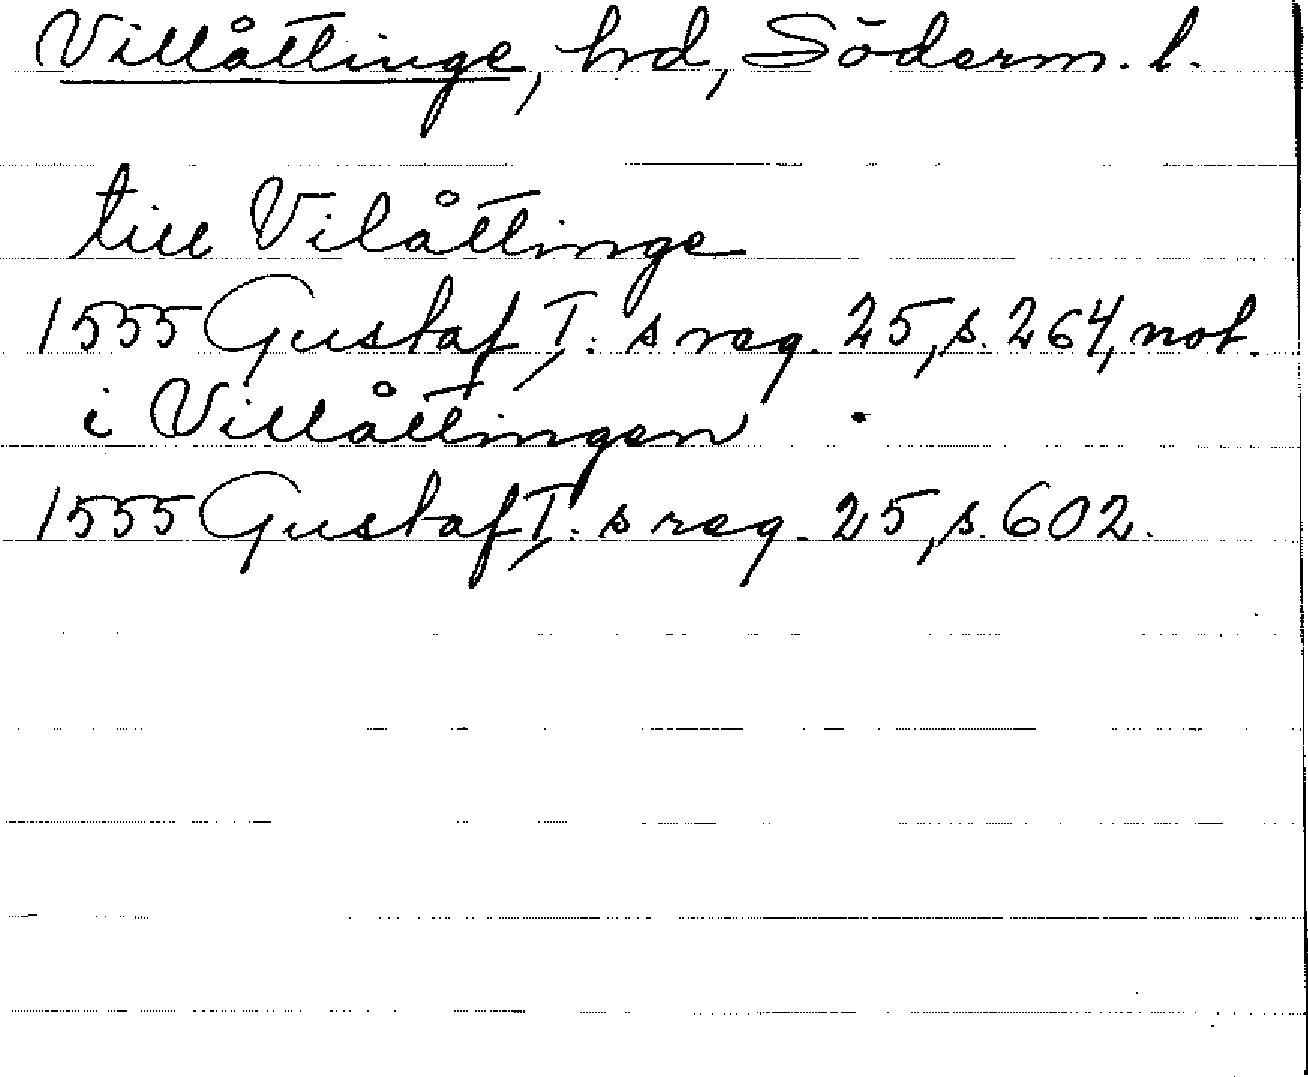 Villåttinge, hd, Söderm. l.
till Vilåttinge
1555 Gustaf I:s reg. 25, s. 264, not.
i Villåttingen
1555 Gustaf I:s reg. 25, s. 602.